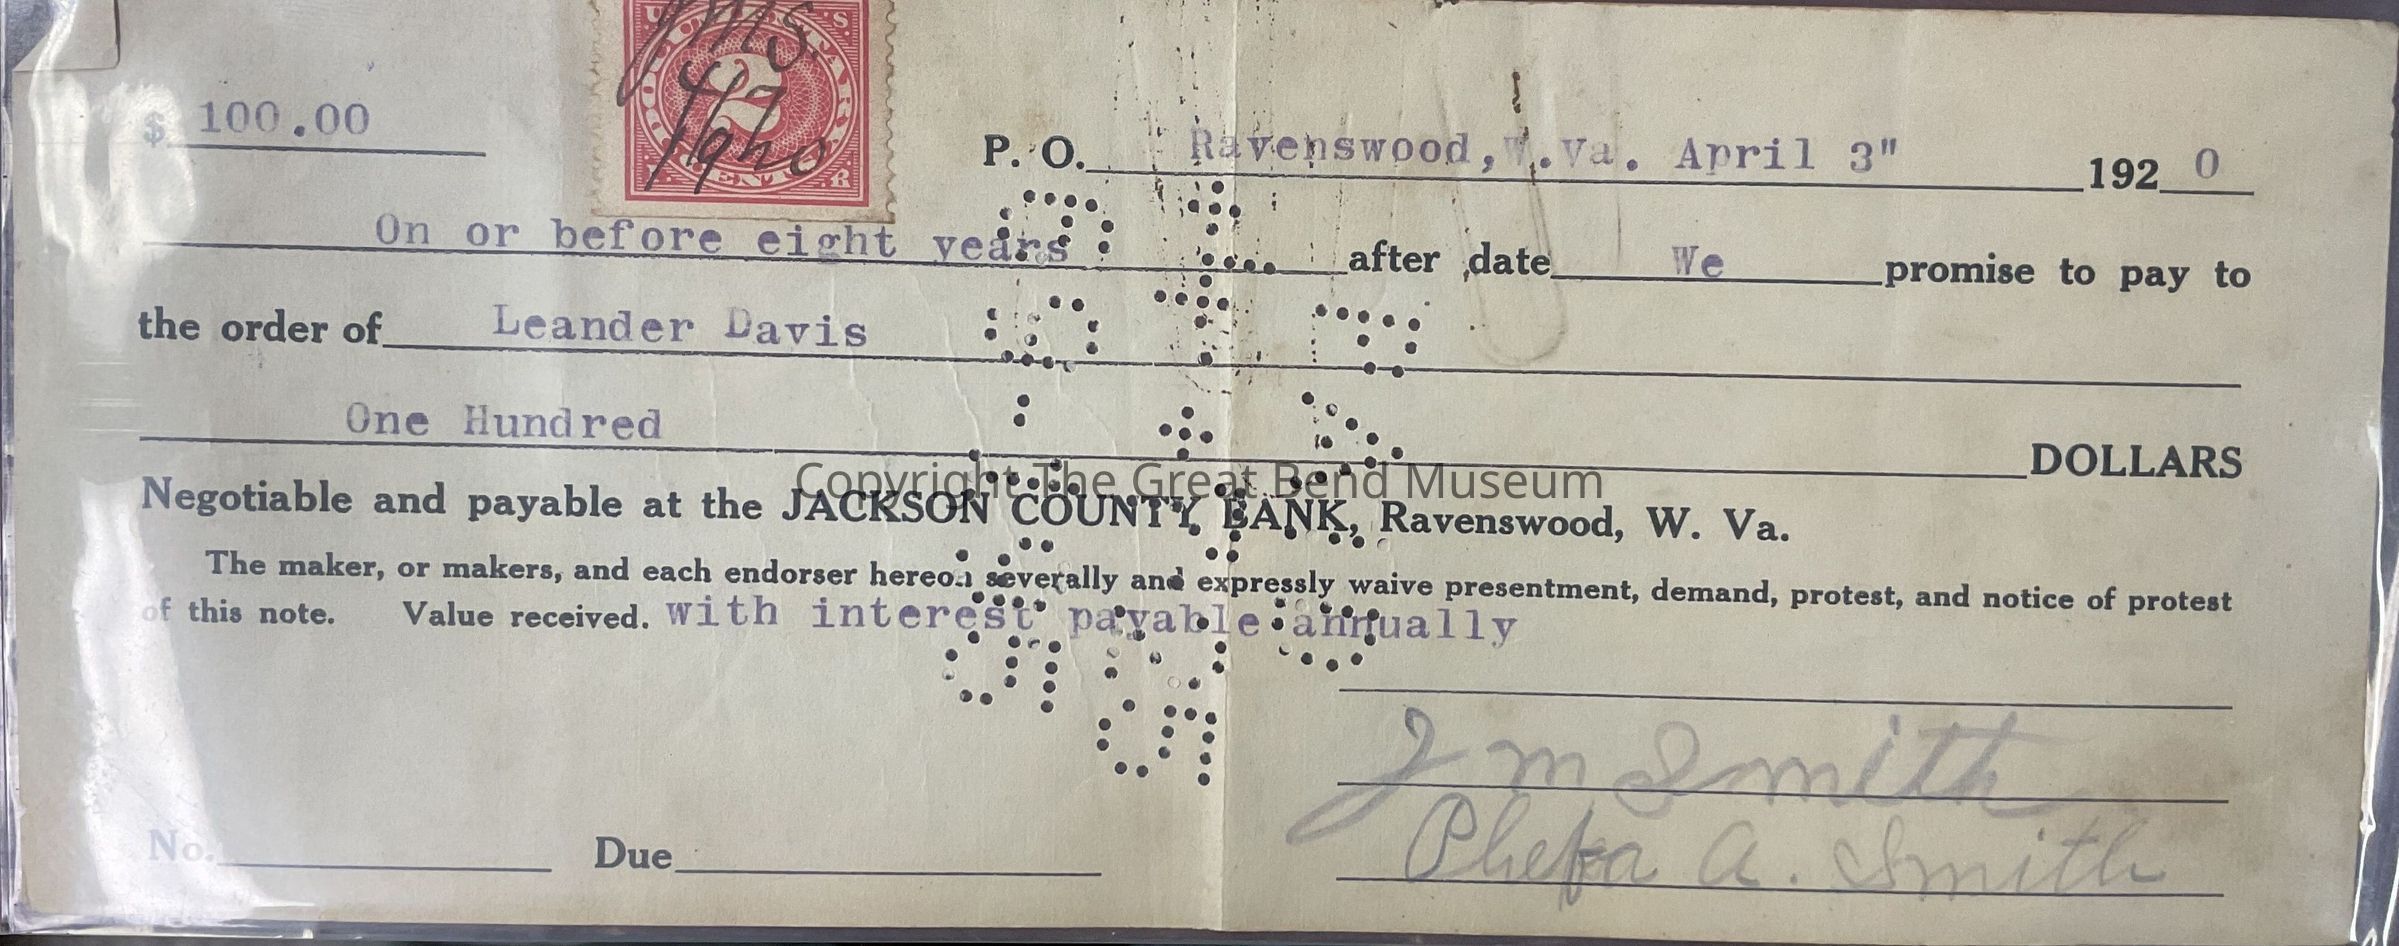 U. S.
DOCUMENTARY
2
CENTS
J M S.
4/3
1920
$ 100.00
P. O. Ravenswood, W.Va. April 3" 1920
On or before eight years after date We promise to pay to
the order of Leander Davis
One Hundred DOLLARS
Copyright The Great Bend Museum
Negotiable and payable at the JACKSON COUNTY BANK, Ravenswood, W. Va.
The maker, or makers, and each endorser hereon severally and expressly waive presentment, demand, protest, and notice of protest
of this note. Value received. with interest payable annually
J M Smith
A. Smith
No. Due